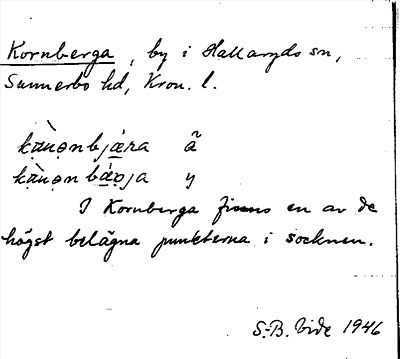 Kornberga, by i Hallaryds sn,
Sunnerbo hd, Kron. l.
kȧ̀uọnbjæ̀ra ã
kȧ̀uọnbáọja y
I Kornberga finns en av de
högst belägna punkterna i socknen.
S.-B. Vide 1946